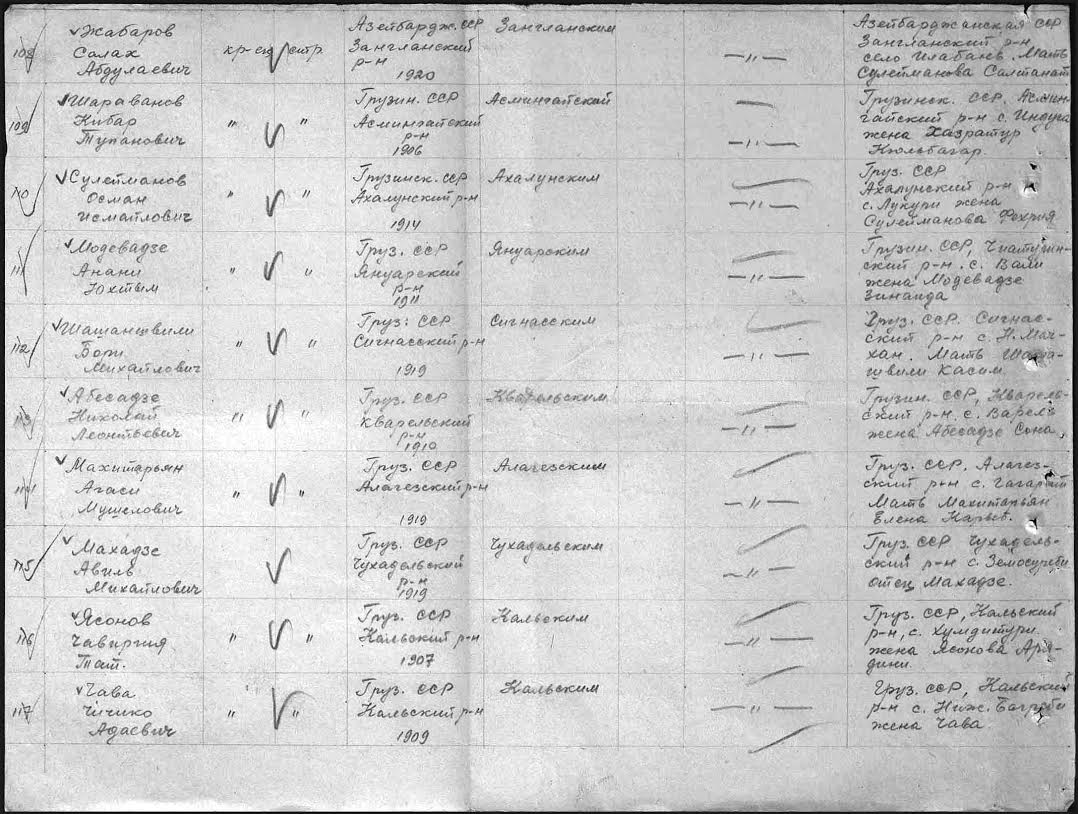 108
Жабаров
Салах
Абдулаевич
кр-ец стр
Азейбардж. ССР
Зангланский
р-н
1920
Зангланским
—"—
Азейбарджанская ССР
Зангланский р-н
село Илабань. Мать
Сулейманова Салтанат
109
Шараванов
Кибар
Тупанович
" "
Грузин. ССР
Асмингайский
р-н
1906
Асмингайской
—"—
Грузинск. ССР. Асмин-
гайский р-н с. Индуга
жена Хазратур
Кюльбагар.
110
Сулейманов
Осман
Исмайлович
" "
Грузинск. ССР
Ахалунский р-н
1914
Ахалунским
—"—
Груз. ССР
Ахалунский р-н
с. Лукури жена
Сулейманова Фехрия
111
Модевадзе
Анани
Юхтым
" "
Груз. ССР
Януарский
р-н
1911
Януарским
—"—
Грузин. ССР, Чиатурин-
ский р-н. с. Вали
жена Модевадзе
Зинаида
112
Шашаншвили
Бори
Михайлович
" "
Груз. ССР
Сигнасский р-н
1919
Сигнасским
—"—
Груз. ССР. Сигнас-
ский р-н с. Н. Мач-
хан. Мать Шаша-
швили Касим.
113
Абесадзе
Николай
Леонтьевич
" "
Груз. ССР
Кварельский
р-н
1910
Квадельским
—"—
Грузин. ССР, Кварель-
ский р-н. с. Варель
жена Абесадзе Сона,
114
Махитарьян
Агаси
Мушелович
" "
Груз. ССР
Алагезский р-н
1919
Алагезским
—"—
Груз. ССР, Алагез-
ский р-н с.
Мать Махитарьян
Елена Карыб.
115
Махадзе
Авиль
Михайлович
Груз. ССР
Чухадельский
р-н
1919
Чухадельским
—"—
Груз. ССР Чухадель-
ский р-н с.
отец Махадзе.
116
Ясонов
Чавиргия
Тат.
" "
Груз. ССР
Кальский р-н
1907
Кальским
—"—
Груз. ССР, Кальский
р-н, с. Хумдитури.
жена Ясонова Аря-
дини.
117
Чава
Чичико
Адаевич
" "
Груз. ССР
Кальский р-н
1909
Кальским
—"—
Груз. ССР, Кальский
р-н с. Ниж.
жена Чава